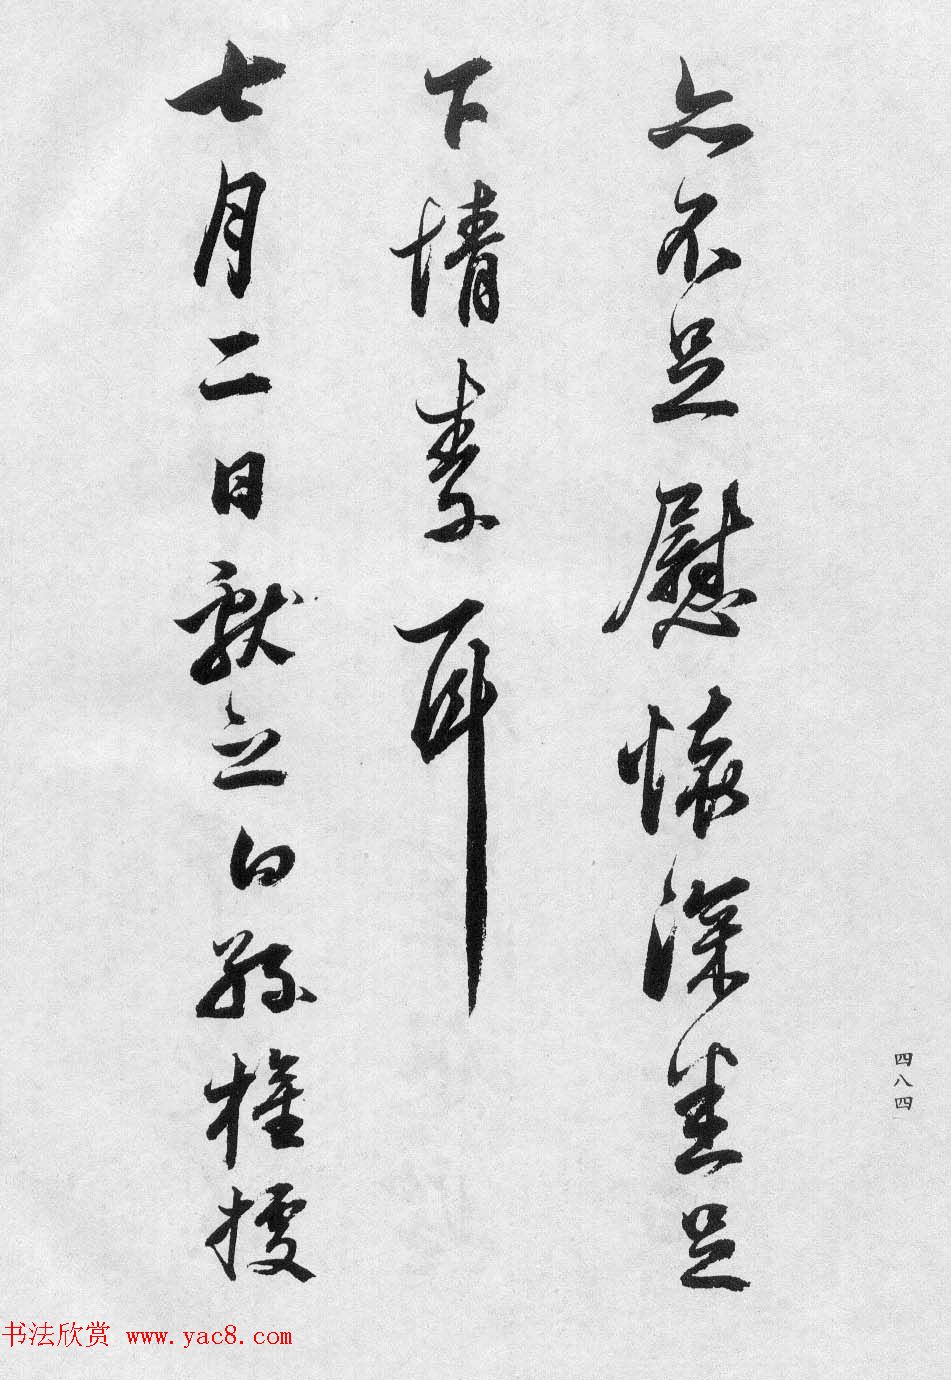 亦不足慰懷深足
下情素耳
七月二日獻之白孫權據
四八四
书法欣赏 www.yac8.com